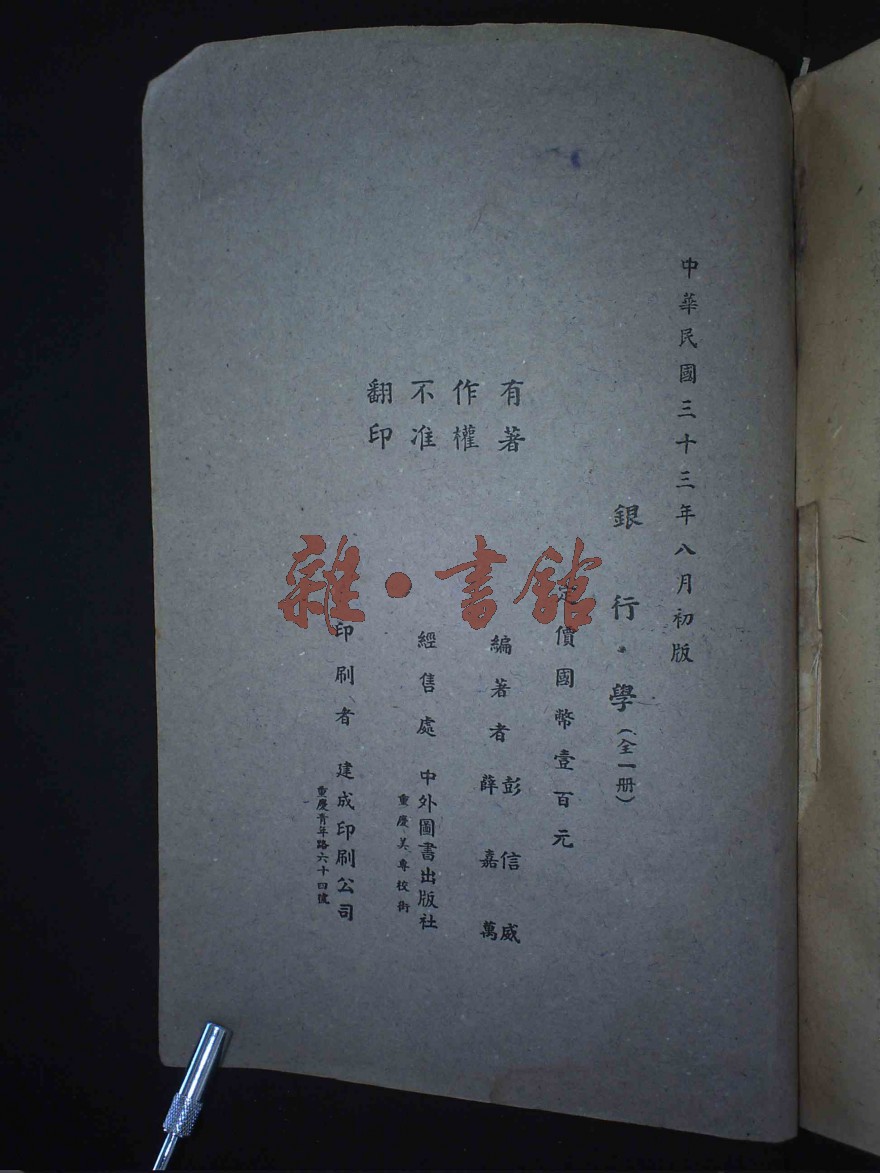 中華民國三十三年八月初版
銀行學(全一册)
定價國幣壹百元
有著
作權
不准
翻印
編著者 彭信威
薛嘉萬
經售處 中外圖書出版社
重慶美專校街
印刷者 建成印刷公司
重慶青年路六十四號
雜·書館